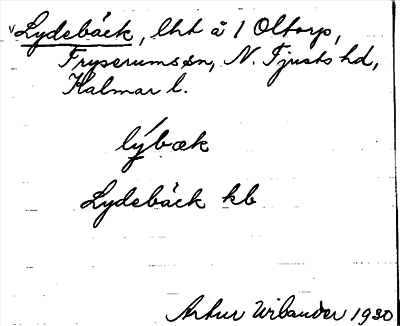 v Lydebäck, lht å 1 Oltorp,
Fryserums sn, N. Tjusts hd,
Kalmar l.
ly´bæk
Lydebäck kb
Artur Wilander 1930